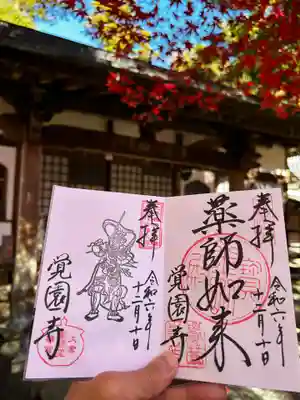 奉拝
薬師如来
覚園寺
令和六年
十二月十日
奉拝
覚園寺
令和六年
十二月十日